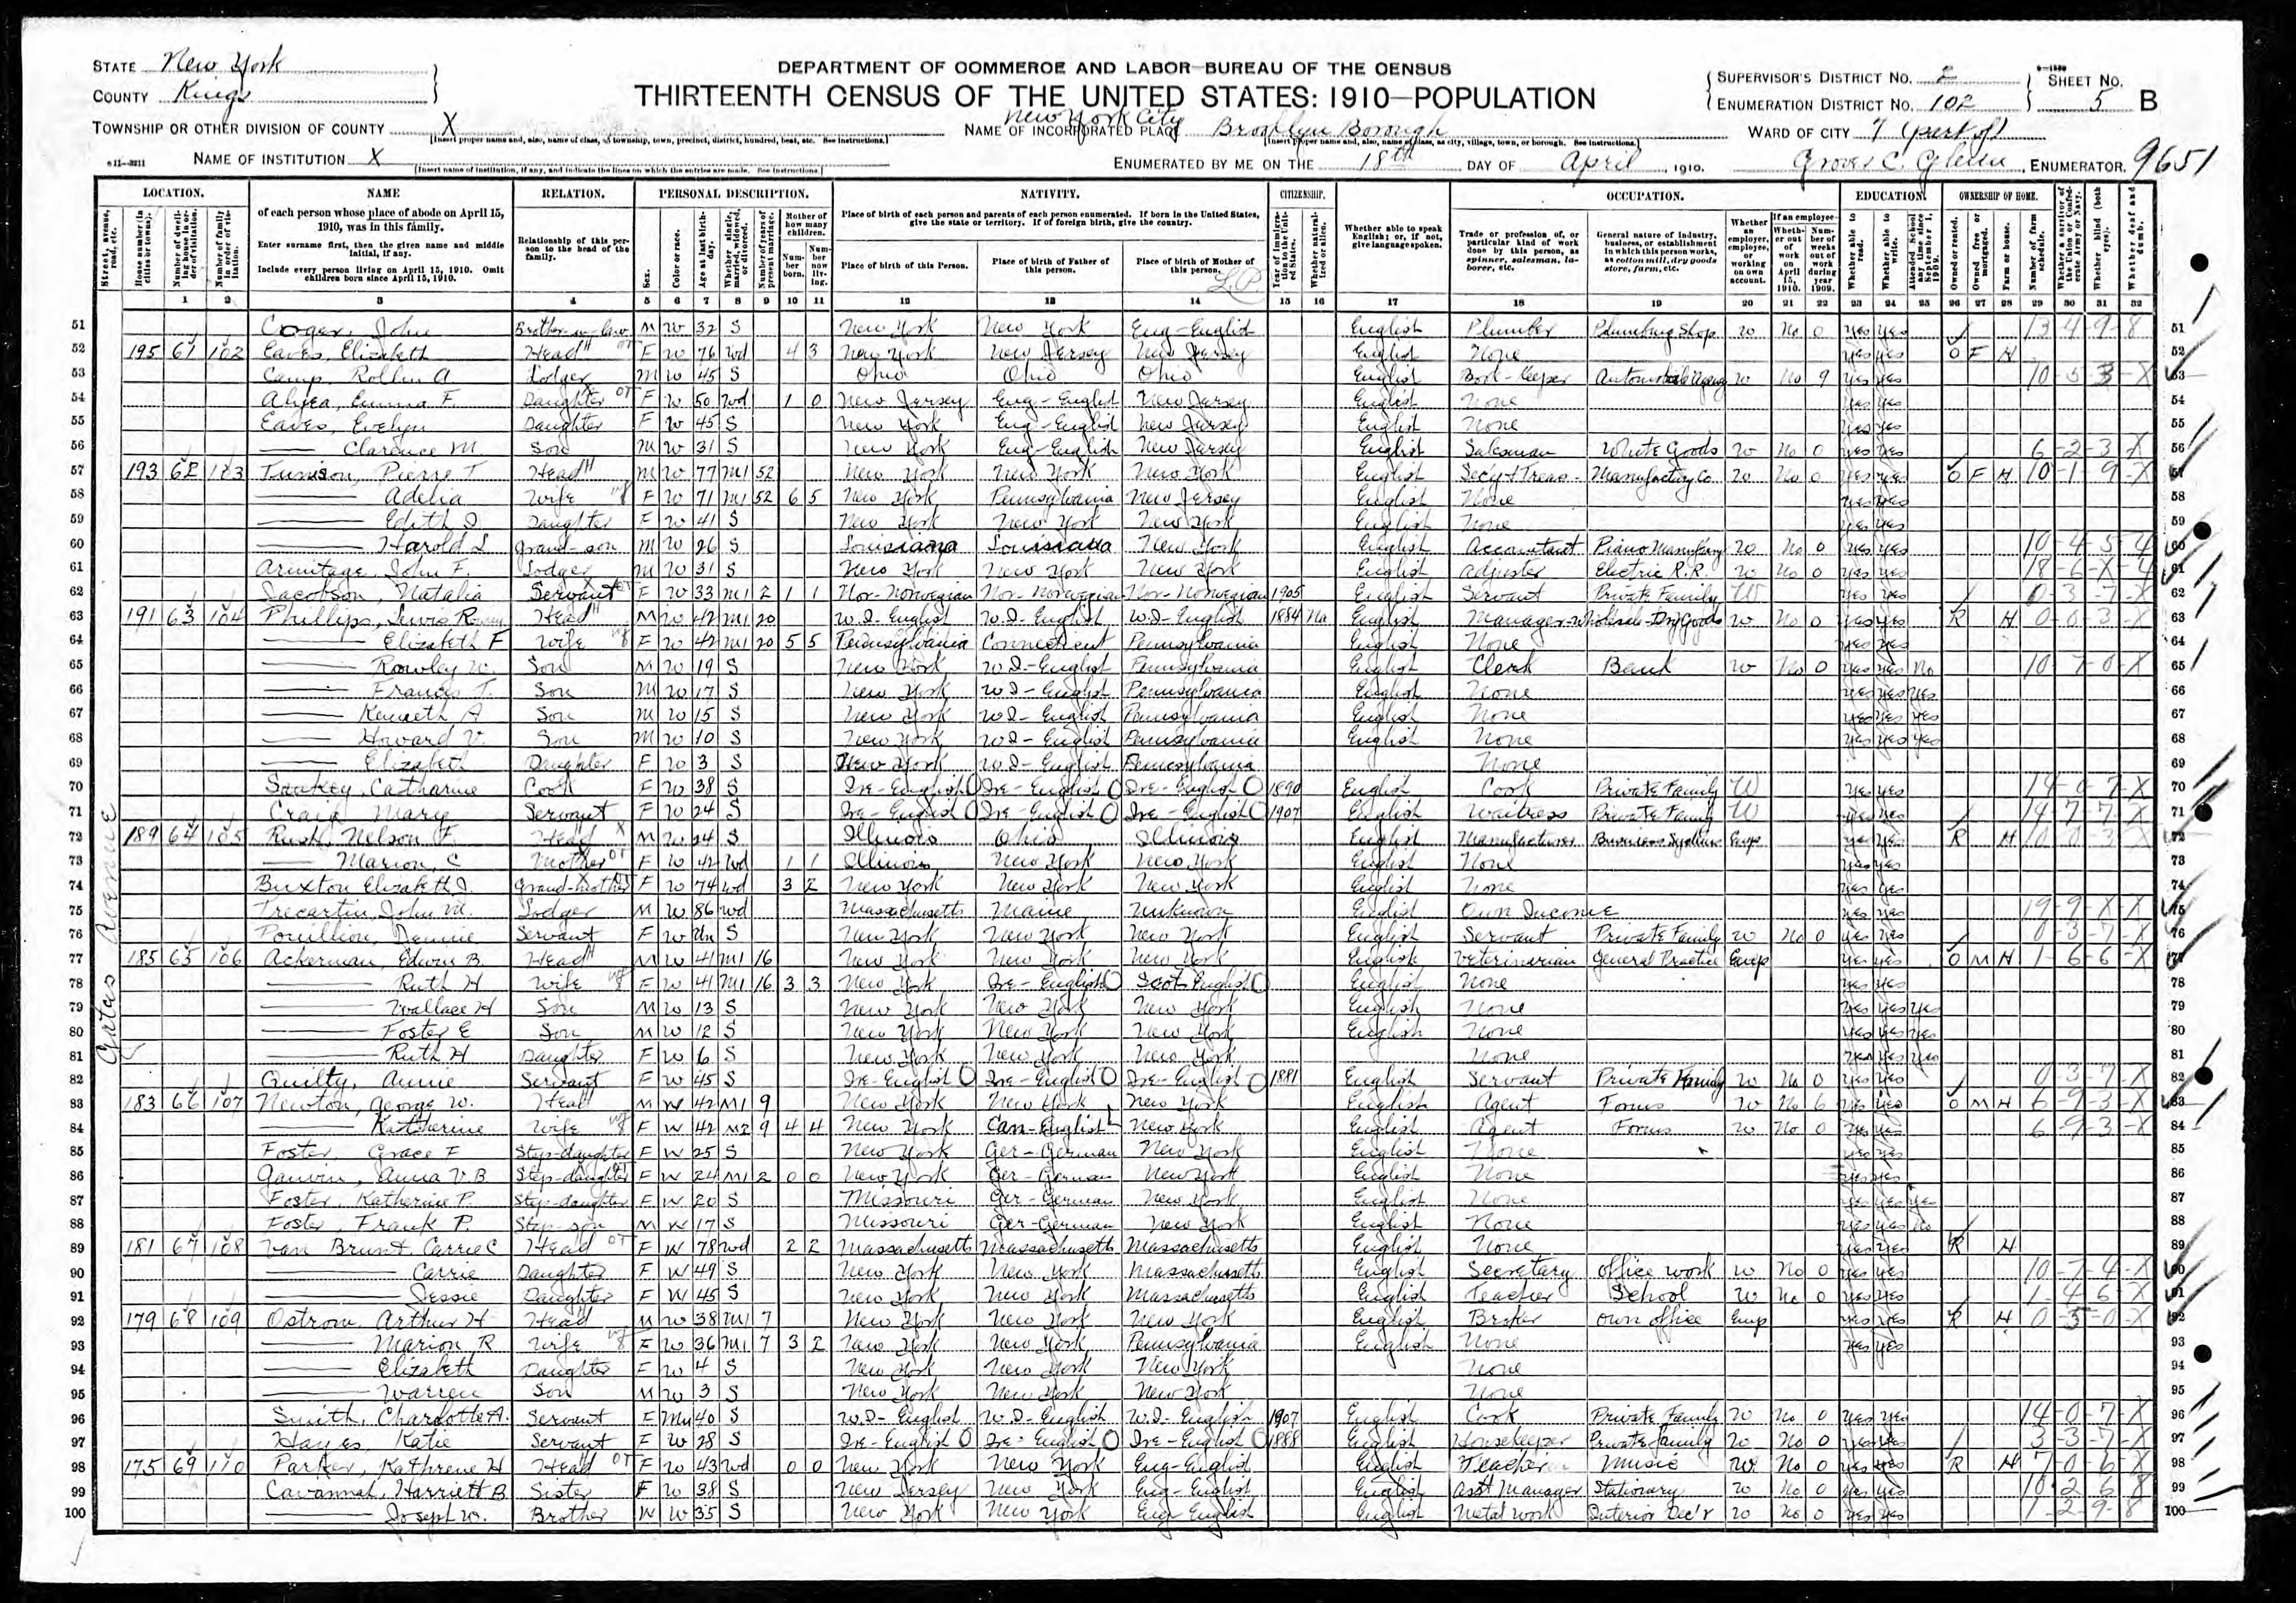 DEPARTMENT OF COMMERCE AND LABOR—BUREAU OF THE CENSUS
THIRTEENTH CENSUS OF THE UNITED STATES: 1910—POPULATION
STATE New York
COUNTY Kings
TOWNSHIP OR OTHER DIVISION OF COUNTY X
NAME OF INSTITUTION X
New York City
NAME OF INCORPORATED PLACE Brooklyn Borough
ENUMERATED BY ME ON THE 18th DAY OF April, 1910. Grover C. Glenn, ENUMERATOR. 9651
SUPERVISOR'S DISTRICT No. 2
ENUMERATION DISTRICT No. 102
SHEET No. 5 B
WARD OF CITY 7 (part of)
LOCATION. NAME RELATION. PERSONAL DESCRIPTION. NATIVITY. CITIZENSHIP. OCCUPATION. EDUCATION. OWNERSHIP OF HOME.
of each person whose place of abode on April 15, 1910, was in this family.
Enter surname first, then the given name and middle initial, if any.
Include every person living on April 15, 1910. Omit children born since April 15, 1910.
Relationship of this person to the head of the family.
Place of birth of each person and parents of each person enumerated. If born in the United States, give the state or territory. If of foreign birth, give the country.
Place of birth of this Person. Place of birth of Father of this person. Place of birth of Mother of this person.
Whether able to speak English; or, if not, give language spoken.
Trade or profession of, or particular kind of work done by this person, as spinner, salesman, laborer, etc.
General nature of industry, business, or establishment in which this person works, as cotton mill, dry goods store, farm, etc.
Gates Avenue
51 Coger, John Brother-in-law M W 32 S New York New York Eng-English English Plumber Plumbing Shop W No 0 yes yes 13-4-9-8
52 195 61 102 Eaves, Elizabeth Head F W 76 Wd 4 3 New York New Jersey New Jersey English None yes yes O F H
53 Camp, Rollin A Lodger M W 45 S Ohio Ohio Ohio English Book-keeper Automobile Agency W No 9 yes yes 10-5-3-X
54 Alyea, Emma F. Daughter F W 50 Wd 1 0 New Jersey Eng-English New Jersey English None yes yes
55 Eaves, Evelyn Daughter F W 45 S New York Eng-English New Jersey English None yes yes
56 — Clarence M Son M W 31 S New York Eng-English New Jersey English Salesman White Goods W No 0 yes yes 6-2-3-X
57 193 62 103 Tunison, Pierre T Head M W 77 M1 52 New York New York New York English Secy & Treas- Manufacting Co W No 0 yes yes O F H 10-1-9-X
58 — Adelia Wife F W 71 M1 52 6 5 New York Pennsylvania New Jersey English None yes yes
59 — Edith D. Daughter F W 41 S New York New York New York English None yes yes
60 — Harold L Grand-son M W 26 S Louisiana Louisiana New York English Accountant Piano W No 0 yes yes 10-4-5-4
61 Armitage, John F. Lodger M W 31 S New York New York New York English Adjuster Electric R.R. W No 0 yes yes 18-6-X-4
62 Jacobson, Natalia Servant F W 33 M1 2 1 1 Nor-Norwegian Nor-Norwegian Nor-Norwegian 1905 English Servant Private Family W yes yes 0-3-7-X
63 191 63 104 Phillips, Lewis Head M W 42 M1 20 W.I.-English W.I.-English W.I-English 1884 Na English Manager Wholesale-Dry Goods W No 0 yes yes R H 0-6-3-X
64 — Elizabeth F Wife F W 42 M1 20 5 5 Pennsylvania Connecticut Pennsylvania English None yes yes
65 — Rowley W. Son M W 19 S New York W.I-English Pennsylvania English Clerk Bank W No 0 yes yes No 10-7-0-X
66 — Francis T. Son M W 17 S New York W I-English Pennsylvania English None yes yes yes
67 — Kenneth A Son M W 15 S New York W I-English Pennsylvania English None yes yes yes
68 — Howard V. Son M W 10 S New York W I-English Pennsylvania English None yes yes yes
69 — Elizabeth Daughter F W 3 S New York W.I-English Pennsylvania None
70 Sankey, Catharine Cook F W 38 S Ire-English Ire-English Ire-English 1890 English Cook Private Family W yes yes 14-0-7-X
71 Craig, Mary Servant F W 24 S Ire-English Ire-English Ire-English 1907 English Waitress Private Family W yes yes 14-7-7-X
72 189 64 105 Rush, Nelson F. Head M W 24 S Illinois Ohio Illinois English Manufacturer Business Systems Emp yes yes R H 0-0-3-X
73 — Marion, C Mother F W 42 Wd 1 1 Illinois New York New York English None yes yes
74 Buxton Elizabeth J. Grand-mother F W 74 Wd 3 2 New York New York New York English None yes yes
75 Trecartin, John M. Lodger M W 86 Wd Massachusetts Maine Unknown English Own Income yes yes 19-9-X-X
76 Pouillion, Servant F W Un S New York New York New York English Servant Private Family W No 0 yes yes 0-3-7-X
77 185 65 106 Ackerman, Edwin B. Head M W 41 M1 16 New York New York New York English Veterinarian General Practice Emp yes yes O M H 1-6-6-X
78 — Ruth H Wife F W 41 M1 16 3 3 New York Ire-English Scot English English None yes yes
79 — Wallace H Son M W 13 S New York New York New York English None yes yes yes
80 — Foster E Son M W 12 S New York New York New York English None yes yes yes
81 — Ruth H Daughter F W 6 S New York New York New York None yes yes yes
82 Quilty, Annie Servant F W 45 S Ire-English Ire-English Ire-English 1881 English Servant Private Family W No 0 yes yes 0-3-7-X
83 183 66 107 Newton, George W. Head M W 42 M1 9 New York New York New York English Agent Forms W No 6 yes yes O M H 6-9-3-X
84 — Katherine Wife F W 42 M2 9 4 4 New York Can-English New York English Agent Forms W No 0 yes yes 6-9-3-X
85 Foster, Grace F Step-daughter F W 25 S New York Ger-German New York English None yes yes
86 Anna V B Step-daughter F W 24 M1 2 0 0 New York Ger-German New York English None yes yes
87 Foster, Katherine P. Step-daughter F W 20 S Missouri Ger-German New York English None yes yes yes
88 Foster, Frank P. Step-son M W 17 S Missouri Ger-German New York English None yes yes no
89 181 67 108 Van Brunt, Carrie C Head F W 78 Wd 2 2 Massachusetts Massachusetts Massachusetts English None yes yes R H
90 — Carrie Daughter F W 49 S New York New York Massachusetts English Secretary Office work W No 0 yes yes 10-7-4-X
91 — Jessie Daughter F W 45 S New York New York Massachusetts English Teacher School W No 0 yes yes 1-4-6-X
92 179 68 109 Ostrom, Arthur H Head M W 38 M1 7 New York New York New York English Broker Own office Emp yes yes R H 0-5-0-X
93 — Marion R Wife F W 36 M1 7 3 2 New York New York Pennsylvania English None yes yes
94 — Elizabeth Daughter F W 4 S New York New York New York None
95 — Warren Son M W 3 S New York New York New York None
96 Smith, Charlotte A. Servant F Mu 40 S W.I-English W.I-English W.I-English 1907 English Cook Private Family W No 0 yes yes 14-0-7-X
97 Hayes, Katie Servant F W 28 S Ire-English Ire-English Ire-English 1888 English Housekeeper Private Family W No 0 yes yes 3-3-7-X
98 175 69 110 Parker, Kathrene H Head F W 43 Wd 0 0 New York New York Eng-English English Teacher Music W No 0 yes yes R H 7-0-6-X
99 Cavannah, Harriett B Sister F W 38 S New Jersey New York Eng-English English Asst Manager Stationary W No 0 yes yes 10-2-6-8
100 — Joseph W. Brother M W 35 S New York New York Eng-English English Metal work Interior Dec'r W No 0 yes yes 1-2-9-8